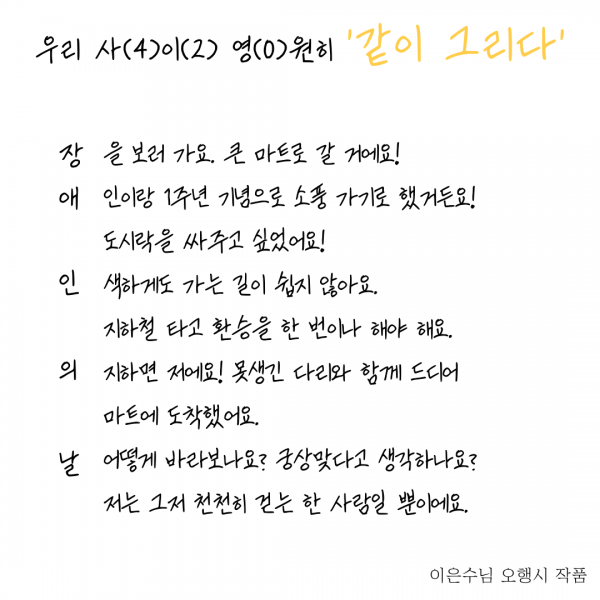 우리 사(4)이(2) 영(0)원히 '같이 그리다'
장 을 보러 가요. 큰 마트로 갈 거에요!
애 인이랑 1주년 기념으로 소풍 가기로 했거든요!
도시락을 싸주고 싶었어요!
인 색하게도 가는 길이 쉽지 않아요.
지하철 타고 환승을 한 번이나 해야 해요.
의 지하면 저에요! 못생긴 다리와 함께 드디어
마트에 도착했어요.
날 어떻게 바라보나요? 궁상맞다고 생각하나요?
저는 그저 천천히 걷는 한 사람일 뿐이에요.
이은수님 오행시 작품